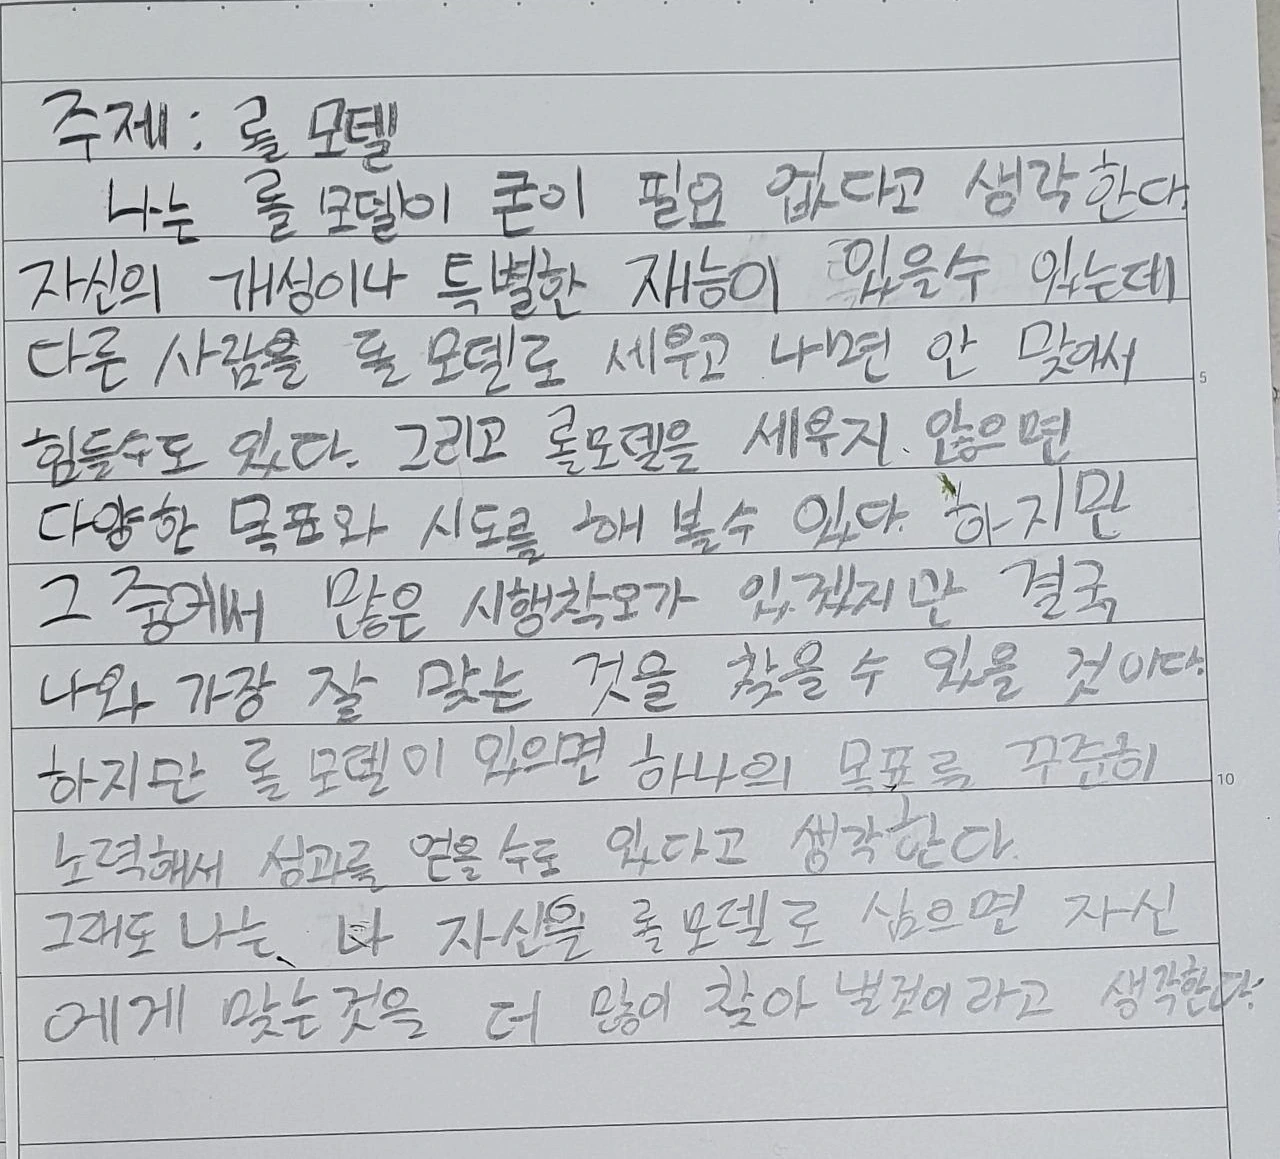 주제: 롤 모델
나는 롤 모델이 굳이 필요 없다고 생각한다.
자신의 개성이나 특별한 재능이 있을수 있는데
다른 사람을 롤 모델로 세우고 나면 안 맞아서
힘들수도 있다. 그리고 롤모델을 세우지 않으면
다양한 목표와 시도를 해 볼수 있다. 하지만
그 중에서 많은 시행착오가 있겠지만 결국
나와 가장 잘 맞는 것을 찾을 수 있을 것이다.
하지만 롤 모델이 있으면 하나의 목표를 꾸준히
노력해서 성과를 얻을 수도 있다고 생각한다.
그래도 나는, 나 자신을 롤 모델로 삼으면 자신
에게 맞는것을 더 많이 찾아 낼것이라고 생각한다.
5
10